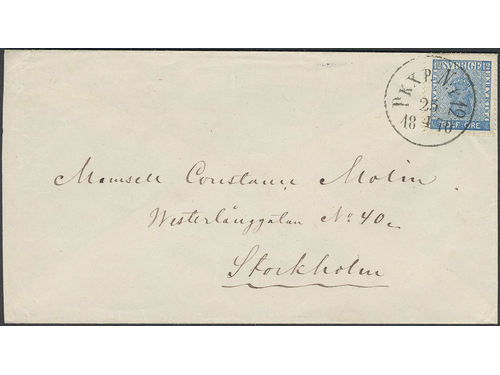 12 SVERIGE 12
TOLF ÖRE
PKXP. Nr 19
25
18 4 70
Mamsell Constance Molin
Westerlånggatan No. 40.
Stockholm